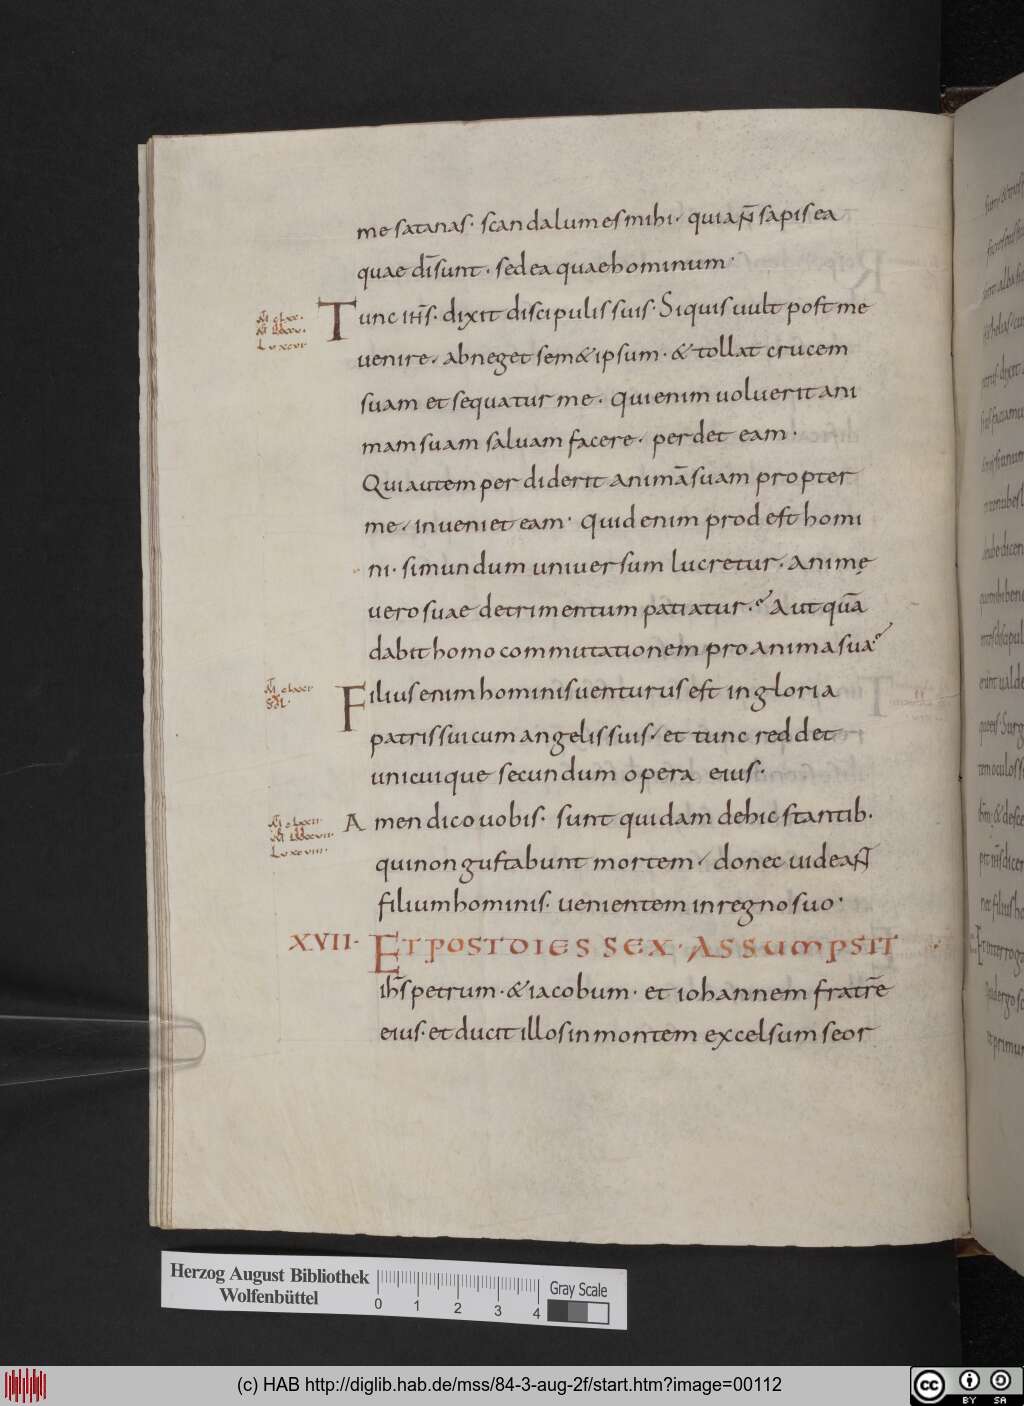 me satanas· scandalum es mihi· quia n̄ sapis ea
quae dī sunt· sed ea quae hominum·
Tunc ih̄s· dixit discipulis suis· Siquis vult post me
venire· abneget sem&ipsum· & tollat crucem
suam et sequatur me· Qui enim voluerit ani
mam suam salvam facere· perdet eam·
Qui autem perdiderit animā suam propter
me· inveniet eam· Quid enim prodest homi
ni· si mundum universum lucretur· animę
vero suae detrimentum patiatur? Aut quā
dabit homo commutationem pro anima sua?
Filius enim hominis venturus est in gloria
patris sui cum angelis suis· et tunc reddet
unicuique secundum opera eius·
Amen dico vobis· sunt quidam de hic stantib·
qui non gustabunt mortem· donec videant
filium hominis· venientem in regno suo·
XVII· ET POST DIES SEX· ASSUMPSIT
ih̄s petrum· & iacobum· et iohannem fratrē
eius· et ducit illos in montem excelsum seor
Herzog August Bibliothek
Wolfenbüttel
0 1 2 3 4
Gray Scale
(c) HAB http://diglib.hab.de/mss/84-3-aug-2f/start.htm?image=00112
cc BY SA